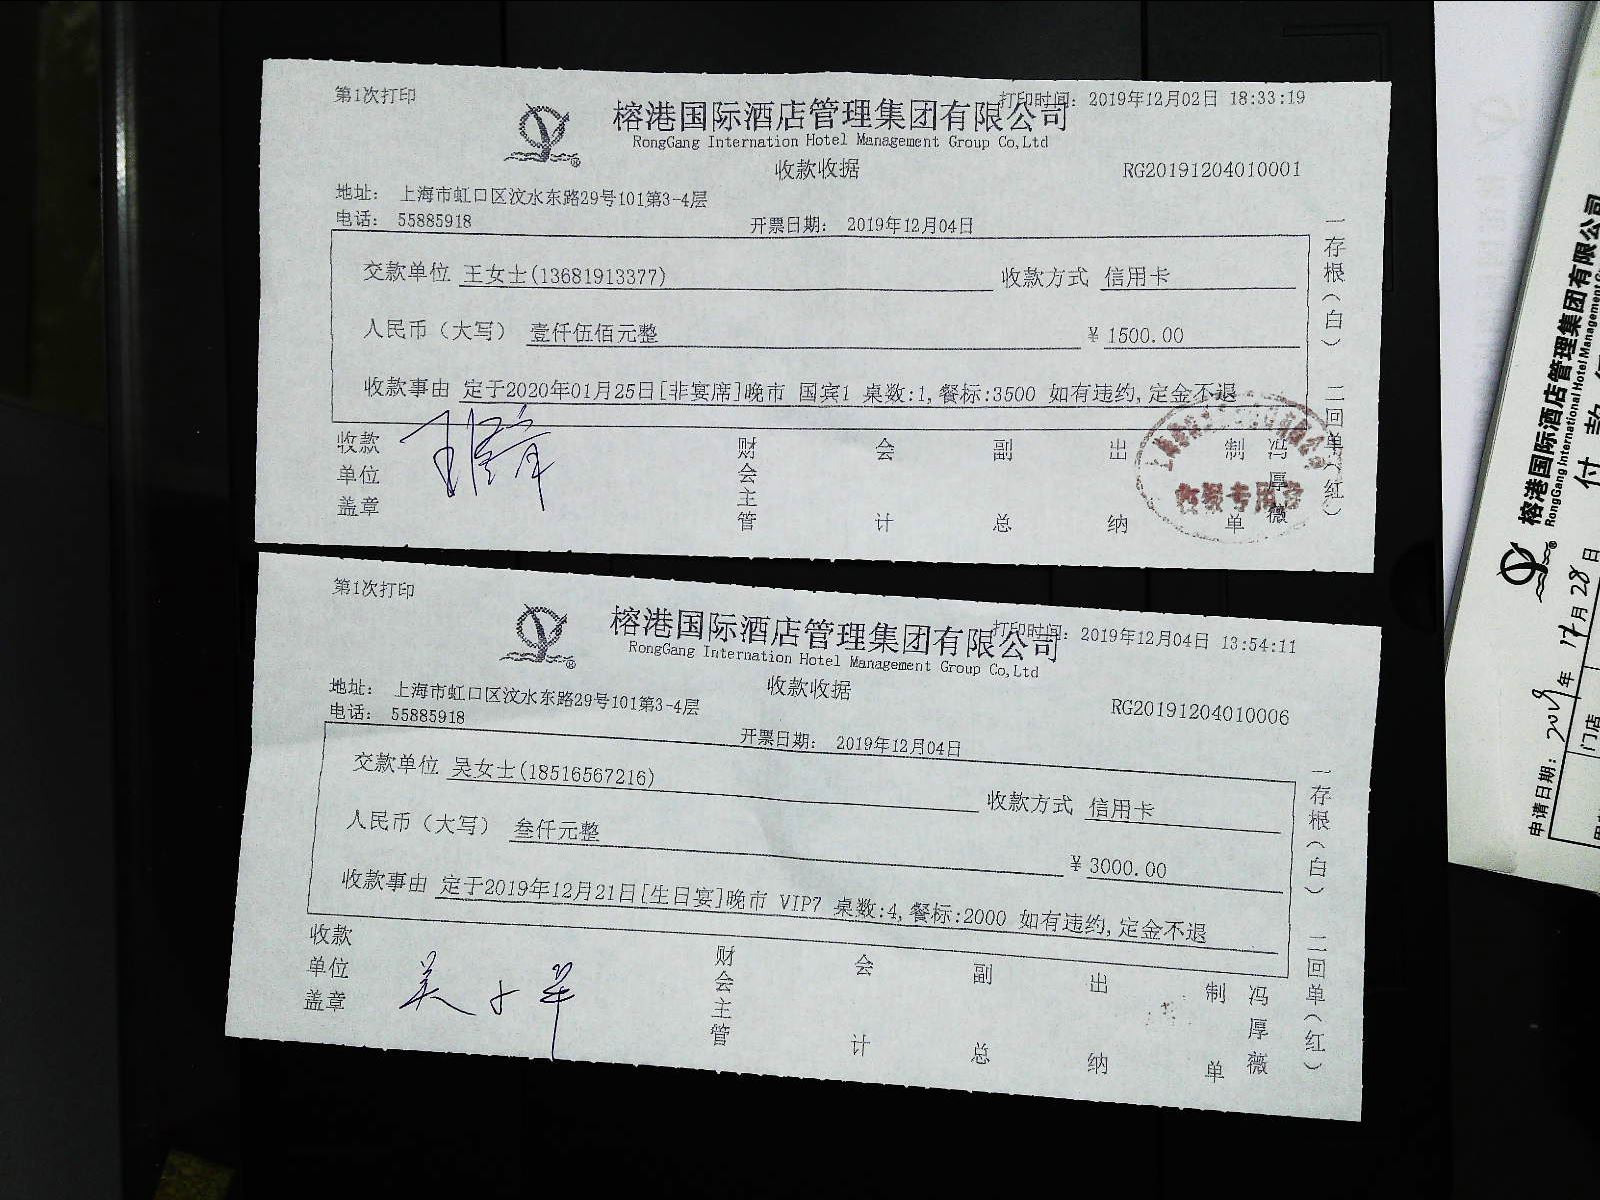 第1次打印
打印时间: 2019年12月02日 18:33:19
榕港国际酒店管理集团有限公司
RongGang Internation Hotel Management Group Co,Ltd
收款收据
RG20191204010001
地址: 上海市虹口区汶水东路29号101第3-4层
电话: 55885918
开票日期: 2019年12月04日
交款单位 王女士(13681913377) 收款方式 信用卡
人民币(大写) 壹仟伍佰元整 ¥ 1500.00
收款事由 定于2020年01月25日[非宴席]晚市 国宾1 桌数:1,餐标:3500 如有违约,定金不退
收款单位盖章 财会主管 会计 副总 出纳 制单 冯厚薇
收银专用章
一存根(白) 二回单(红)
第1次打印
打印时间: 2019年12月04日 13:54:11
榕港国际酒店管理集团有限公司
RongGang Internation Hotel Management Group Co,Ltd
收款收据
RG20191204010006
地址: 上海市虹口区汶水东路29号101第3-4层
电话: 55885918
开票日期: 2019年12月04日
交款单位 吴女士(18516567216) 收款方式 信用卡
人民币(大写) 叁仟元整 ¥ 3000.00
收款事由 定于2019年12月21日[生日宴]晚市 VIP7 桌数:4,餐标:2000 如有违约,定金不退
收款单位盖章 财会主管 会计 副总 出纳 制单 冯厚薇
一存根(白) 二回单(红)
榕港国际酒店管理集团有限公司
RongGang International Hotel Management
付 款
申请日期: 年 月 28 日
门店